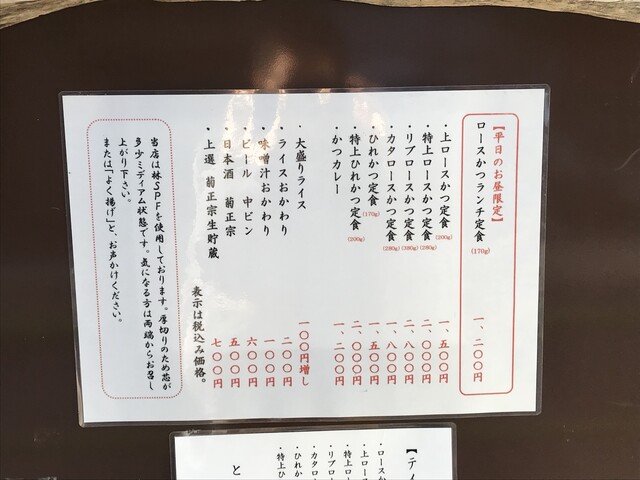 【平日のお昼限定】
ロースかつランチ定食(170g) 一、二〇〇円
・上ロースかつ定食(200g) 一、五〇〇円
・特上ロースかつ定食(280g) 二、〇〇〇円
・リブロースかつ定食(380g) 二、八〇〇円
・カタロースかつ定食(280g) 一、八〇〇円
・ひれかつ定食(170g) 一、五〇〇円
・特上ひれかつ定食(200g) 二、〇〇〇円
・かつカレー 一、二〇〇円
・大盛りライス 一〇〇円増し
・ライスおかわり 二〇〇円
・味噌汁おかわり 一〇〇円
・ビール 中ビン 六〇〇円
・日本酒 菊正宗 五〇〇円
・上選 菊正宗生貯蔵 七〇〇円
表示は税込み価格。
当店は林SPFを使用しております。厚切りのため芯が
多少ミディアム状態です。気になる方は両端からお召し
上がり下さい。
または「よく揚げ」と、お声かけください。
【テイ
・ロースか
・上ロース
・特上ロー
・リブロ
・カタロ
・ひれか
・特上ひ
と